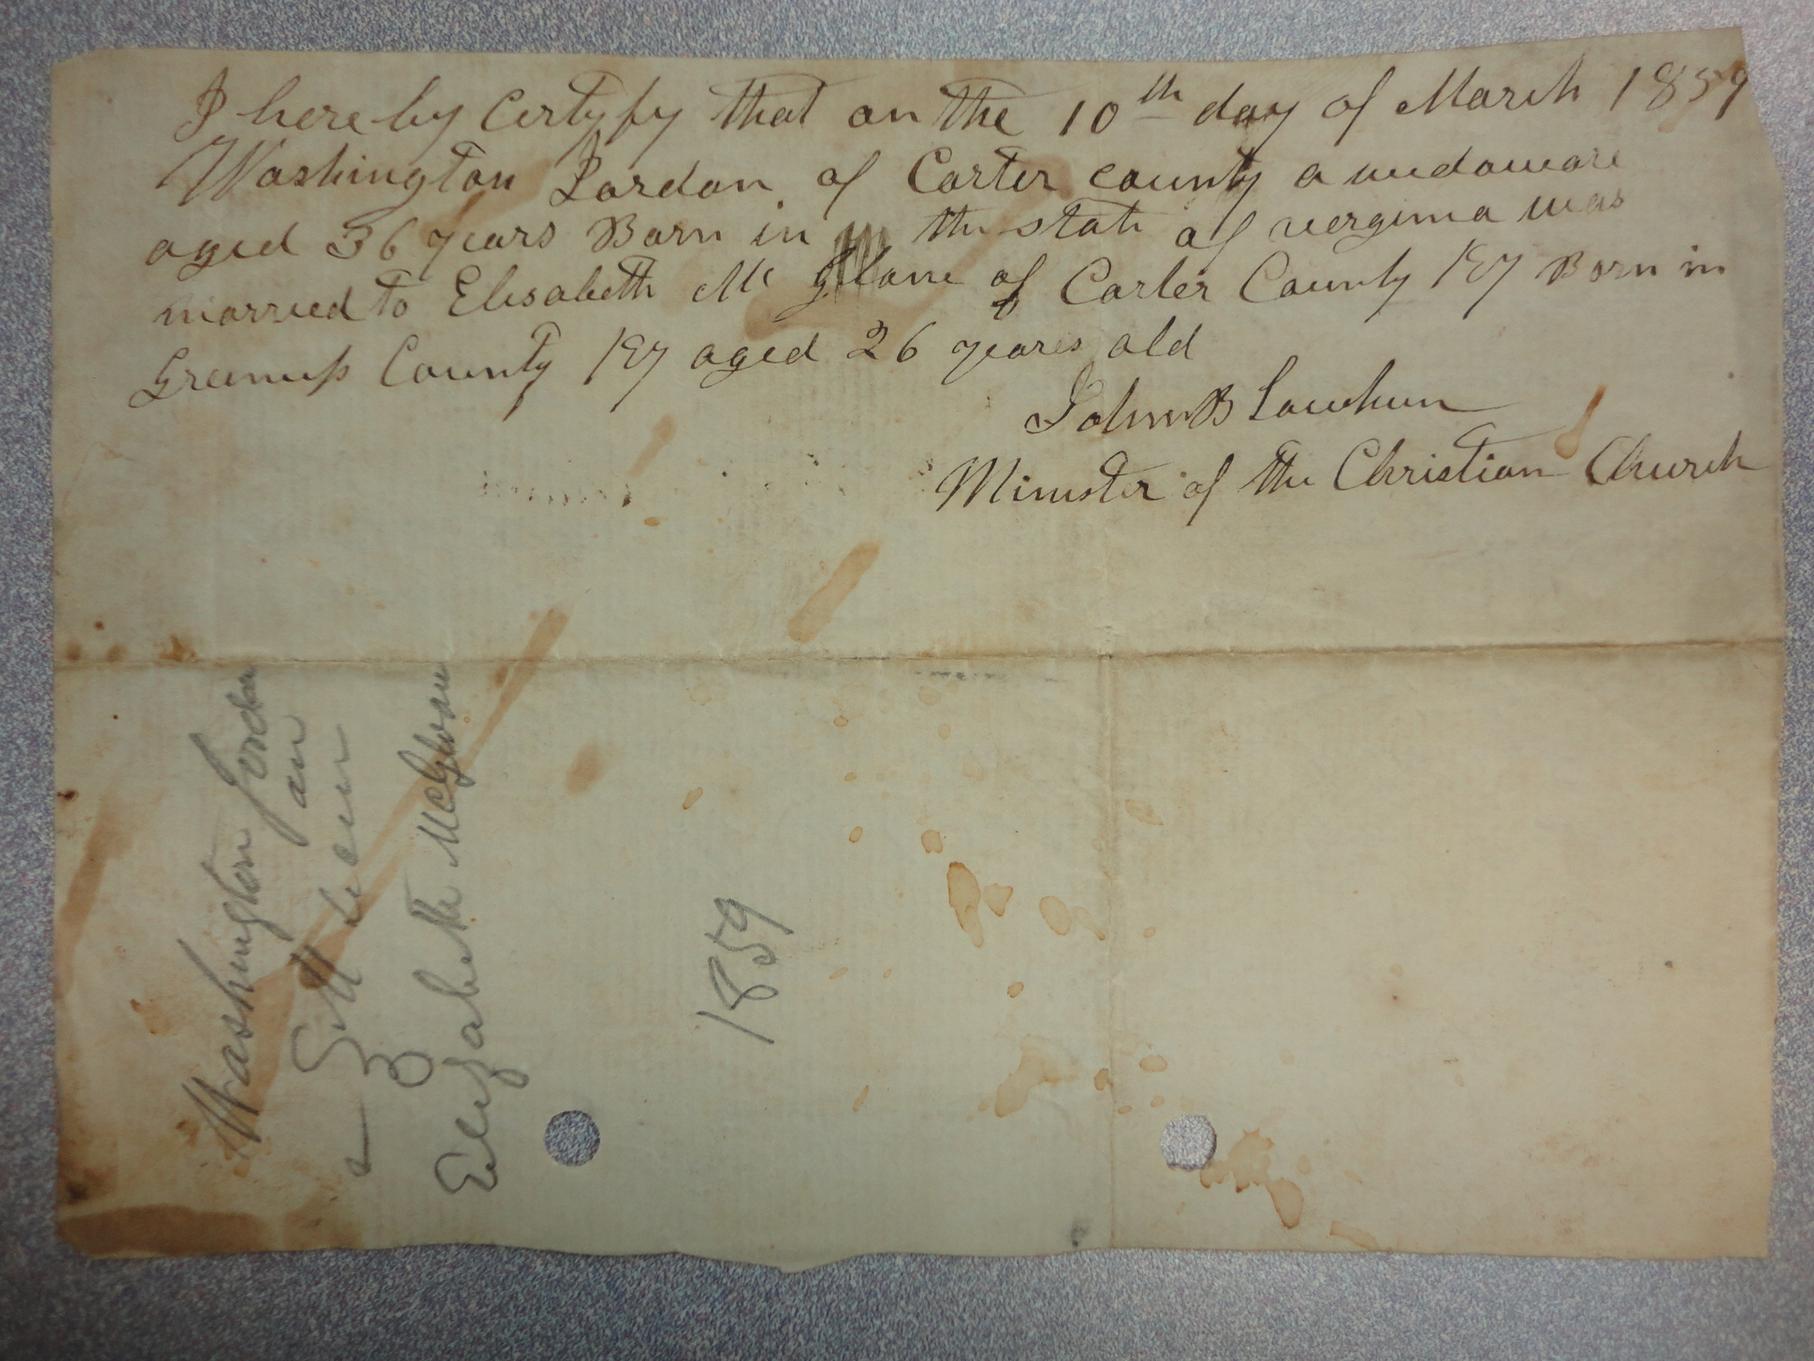 I hereby Certyfy that on the 10th day of March 1859
Washington Jordan of Carter county a widoware
aged 36 years Born in the state of verginia was
married to Elisabeth Mc Glone of Carter County Ky Born in
Greenup County Ky aged 26 years old
John B Lawhun
Minister of the Christian Church
Washington Jordan
an
Elizabeth McGlone
1859